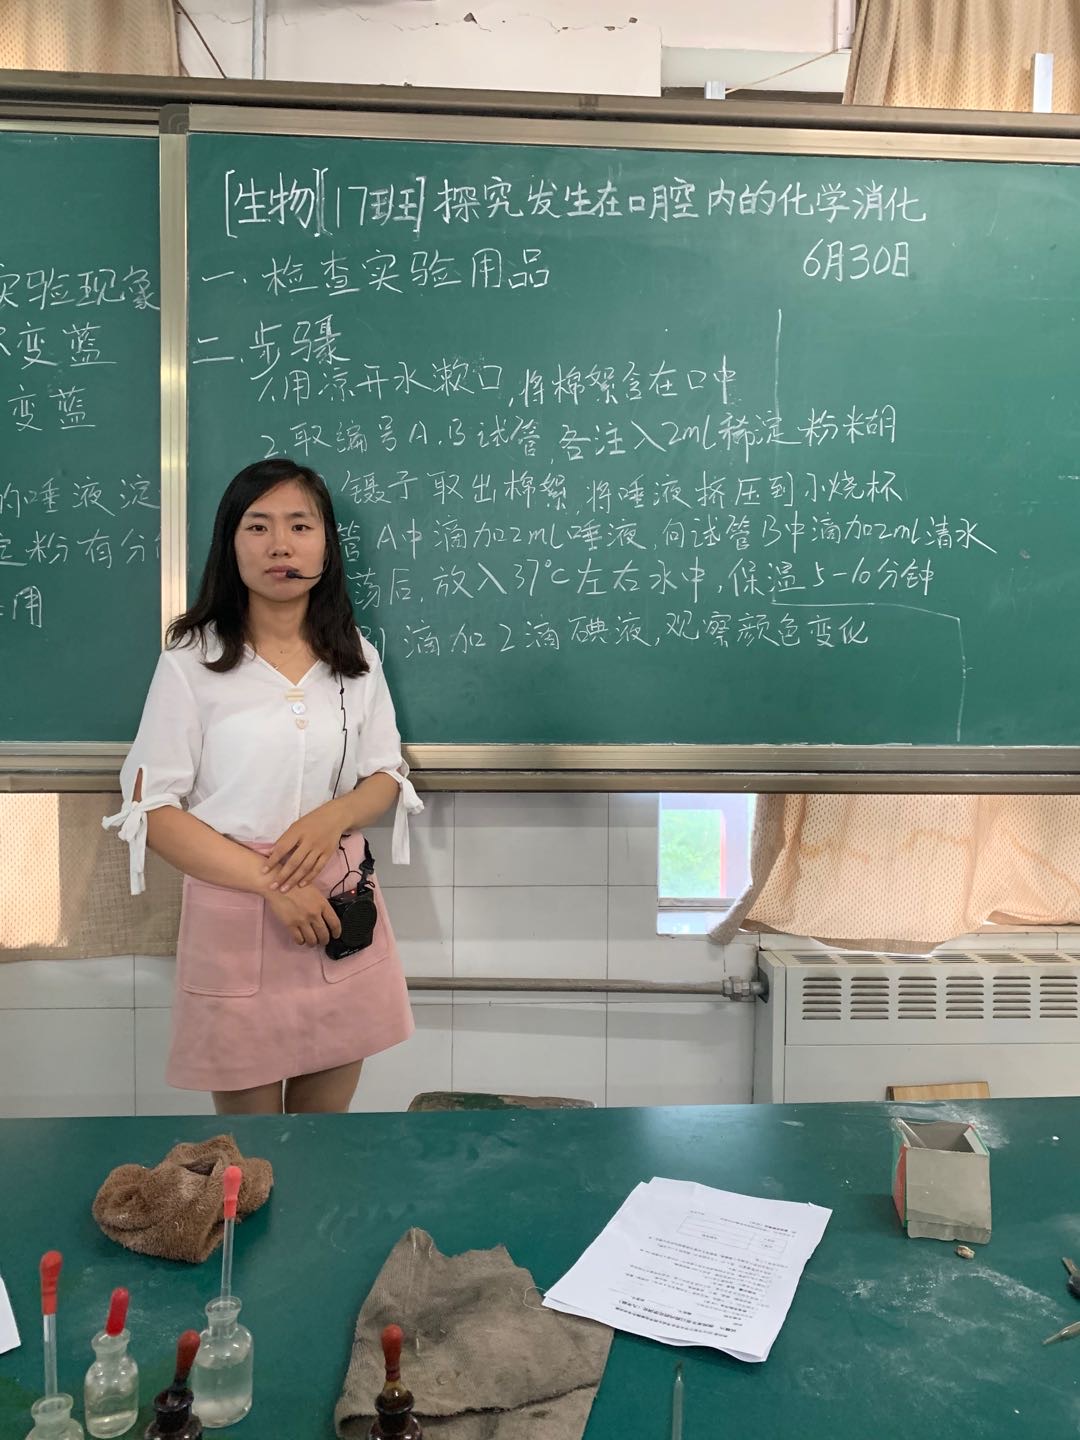 [生物][17班]探究发生在口腔内的化学消化
6月30日
一.检查实验用品
二.步骤
1.用凉开水漱口,将棉絮含在口中
2.取编号A.B试管,各注入2mL稀淀粉糊
镊子取出棉絮,将唾液挤压到小烧杯
管A中滴加2mL唾液,向试管B中滴加2mL清水
荡后,放入37℃左右水中,保温5-10分钟
滴加2滴碘液,观察颜色变化
实验现象
变蓝
变蓝
的唾液淀
淀粉有分
用